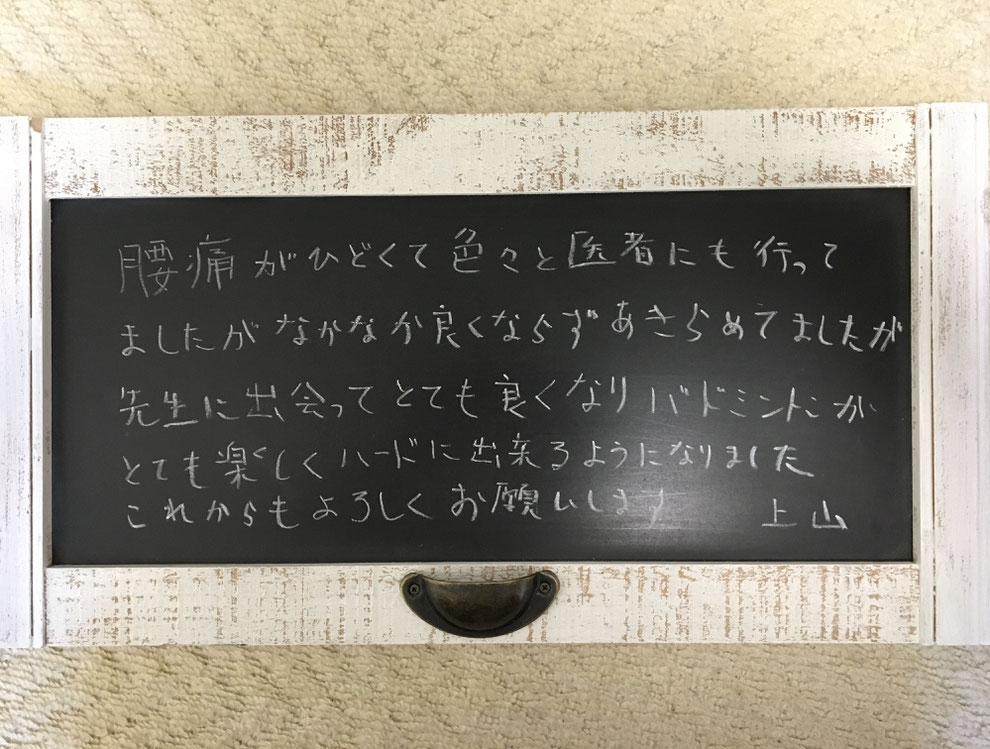 腰痛がひどくて色々と医者にも行って
ましたがなかなか良くならずあきらめてましたが
先生に出会ってとても良くなりバドミントンが
とても楽しくハードに出来るようになりました
これからもよろしくお願いします 上山